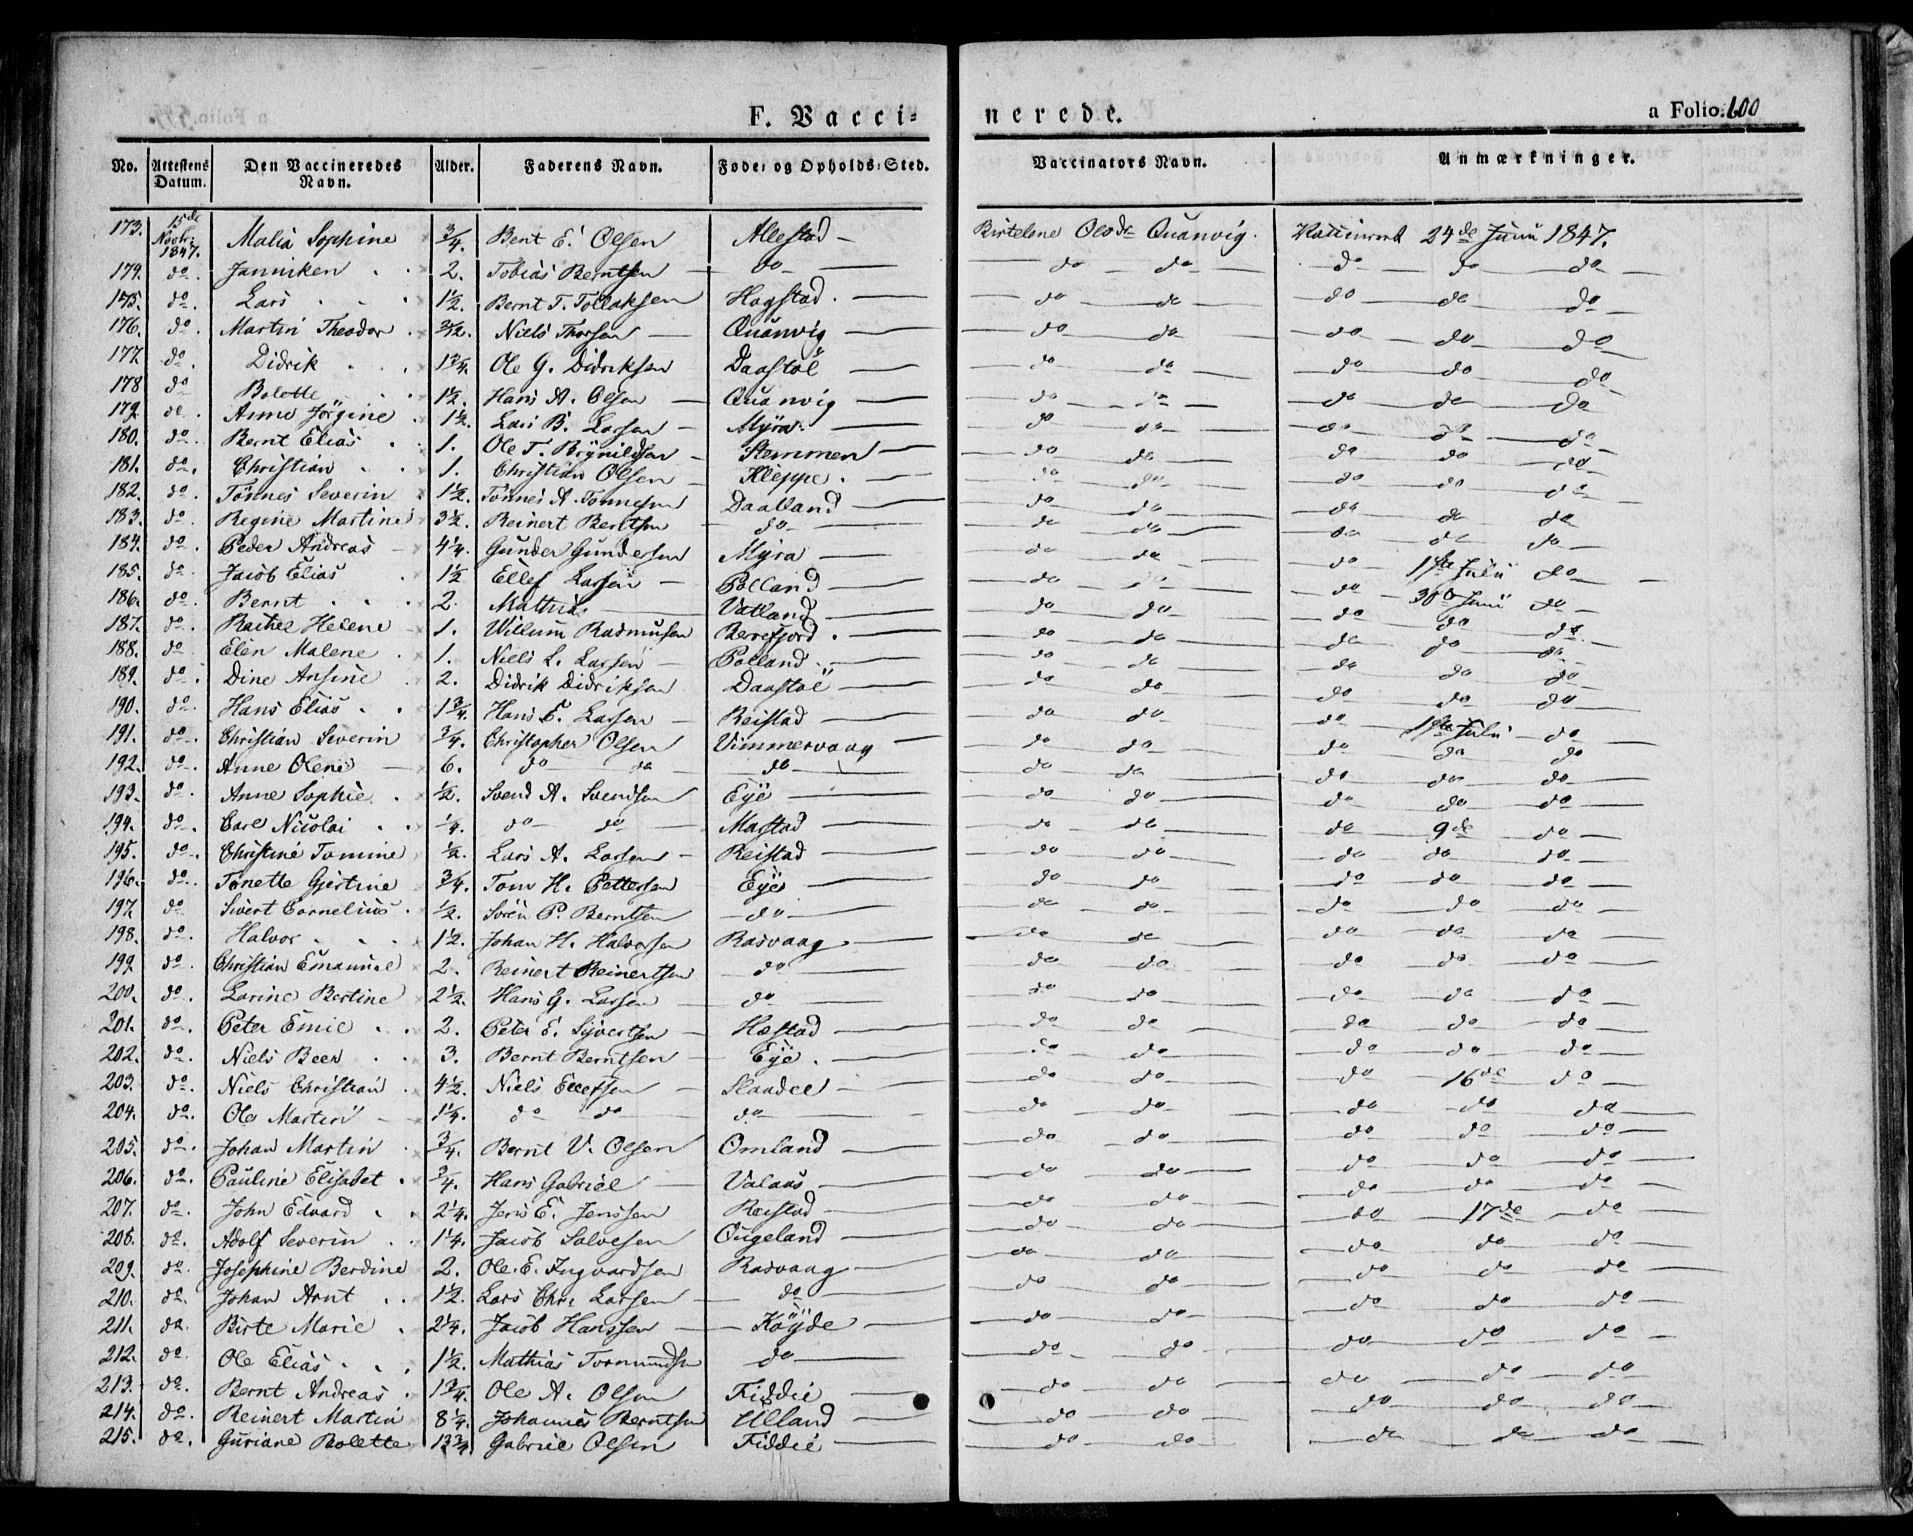 F. Vacci-
nerede.
a Folio. 600
No. Attestens Datum. Den Vaccineredes Navn. Alder. Faderens Navn. Føde- og Opholds-Sted. Vaccinators Navn. Anmærkninger.
173. 15de Novbr: 1847. Malia Sophine 3/4. Bent E. Olsen Allestad Birtelene Olsdr Quanvig. 24de Juni 1847.
174. do. Janniken 2. Tobias Berntsen do do do do do do
175. do. Lars 1 1/2. Bernt T. Tollaksen Hogstad. do do do do do
176. do. Martin Theodor Niels Thorsen Quanvig do do do do do
177. do. Didrik 1 3/4. Ole G. Didriksen Daastöl do do do do do
178 do Bolette 1 1/2. Hans A. Olsen Quanvig do do do do do
179. do. Anne Jörgine 1 1/2. Lars B. Larsen Myra. do do do do do
180. do. Bernt Elias 1. Ole T. Brynildsen Stemmen do do do do do
181. do. Christian 1. Christian Olsen Kleppe. do do do do do
182. do. Tönnes Severin 1 1/2. Tönnes A. Tönnesen Daatland do do do do do
183. do. Regine Martine 3 1/2. Reinert Berntsen do do do do do do
184. do. Peder Andreas 4 1/4. Gunder Gundersen Myra do do do do do
185. do. Jacob Elias 1 1/2 Ellef Larsen Polland do do do 1ste Juli do
186. do. Bernt 2. Mathias Vatland do do do 30te Juni do
187. do. Rachel Helene 1. Willum Rasmusen Berrefjord. do do do do do
188. do Elen Malene 1. Niels L. Larsen Polland. do do do do do
189. do. Dine Ansine 2. Didrik Didriksen Daastöl do do do do do
190. do. Hans Elias 1 3/4. Hans E. Larsen Reistad do do do do do
191. do. Christian Severin 3/4. Christopher Olsen Vimmervaag do do do 1ste Juli do
192. do. Anne Olene 6. do do do do do do do do
193. do. Anne Sophie 1/2. Svend A. Svendsen Eye do do do do do
194. do. Carl Nicolai 1/4. do do Mastad do do do do do
195. do. Christine Tomine 1/2. Lars A. Larsen Reistad do do do 9de do
196. do. Tonette Gjertine 3/4. Tom H. Pettersen Eye do do do do do
197. do Sivert Cornelius. 1/2. Sören P. Berntsen do do do do do do
198. do. Halvor 1 1/2. Johan H. Halvorsen Rasvaag. do do do do do
199. do. Christian Emanuel 2. Reinert Reinertsen do do do do do do
200. do. Larine Bertine 2 1/2. Hans G. Larsen do do do do do do
201. do. Peter Emil 2. Peter E. Syvertsen Hestad do do do do do
202. do. Niels Beer 3. Bernt Berntsen Eye. do do do do do
203. do. Niels Christian 4 1/2. Niels Ellefsen do do do 16de do
204. do. Ole Martin 1 1/4. do do do do do do do do
205. do. Johan Martin 3/4. Bernt V. Olsen Omland do do do do do
206. do. Pauline Elisabet 3/4. Hans Gabriel Valaas do do do do do
207. do. John Edvard 2 1/4. Jens E. Jenssen Reistad do do do do do
208. do. Adolf Severin 1 1/4. Jacob Salvesen Ougeland do do do 17de do
209. do. Josephine Berdine 2. Ole. E. Ingvardsen Rasvaag do do do do do
210. do. Johan Arnt 1 1/2. Lars Chr. Larsen do do do do do do
211. do. Birte Marie 2 1/4. Jacob Hanssen Köyde do do do do do
212. do Ole Elias 1 1/2. Mathias Tormundsen do do do do do do
213. do. Bernt Andreas 1 3/4. Ole A. Olsen Fiddie do do do do do
214. do. Reinert Martin 8 1/4. Johannes Berntsen Ulland do do do do do
215. do. Guriane Bolette Gabriel Olsen Fiddie do do do do do